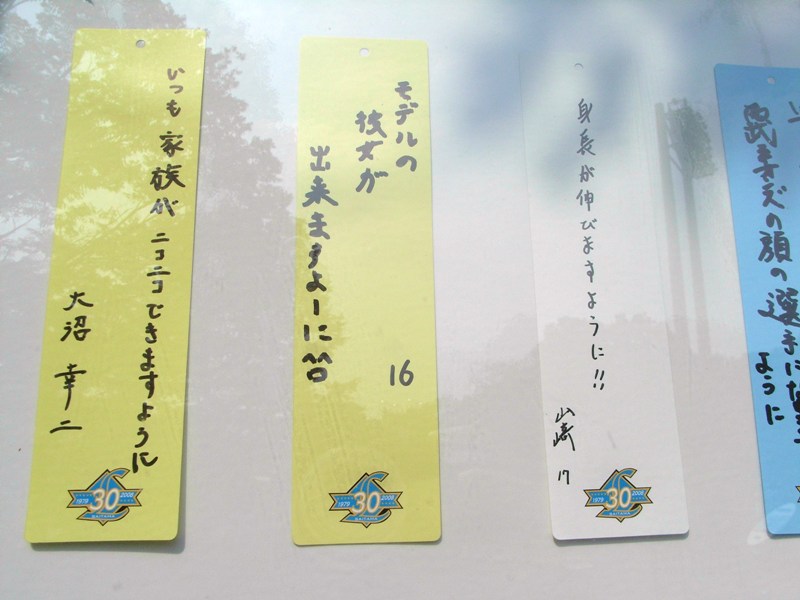 いつも家族が
ニコニコできますように
大沼 幸二
1979 30 2008
SAITAMA
モデルの
彼女が
出来ますよーに^^
16
1979 30 2008
SAITAMA
身長が伸びますように!!
山崎 17
1979 30 2008
SAITAMA
の顔の選手になる
ように